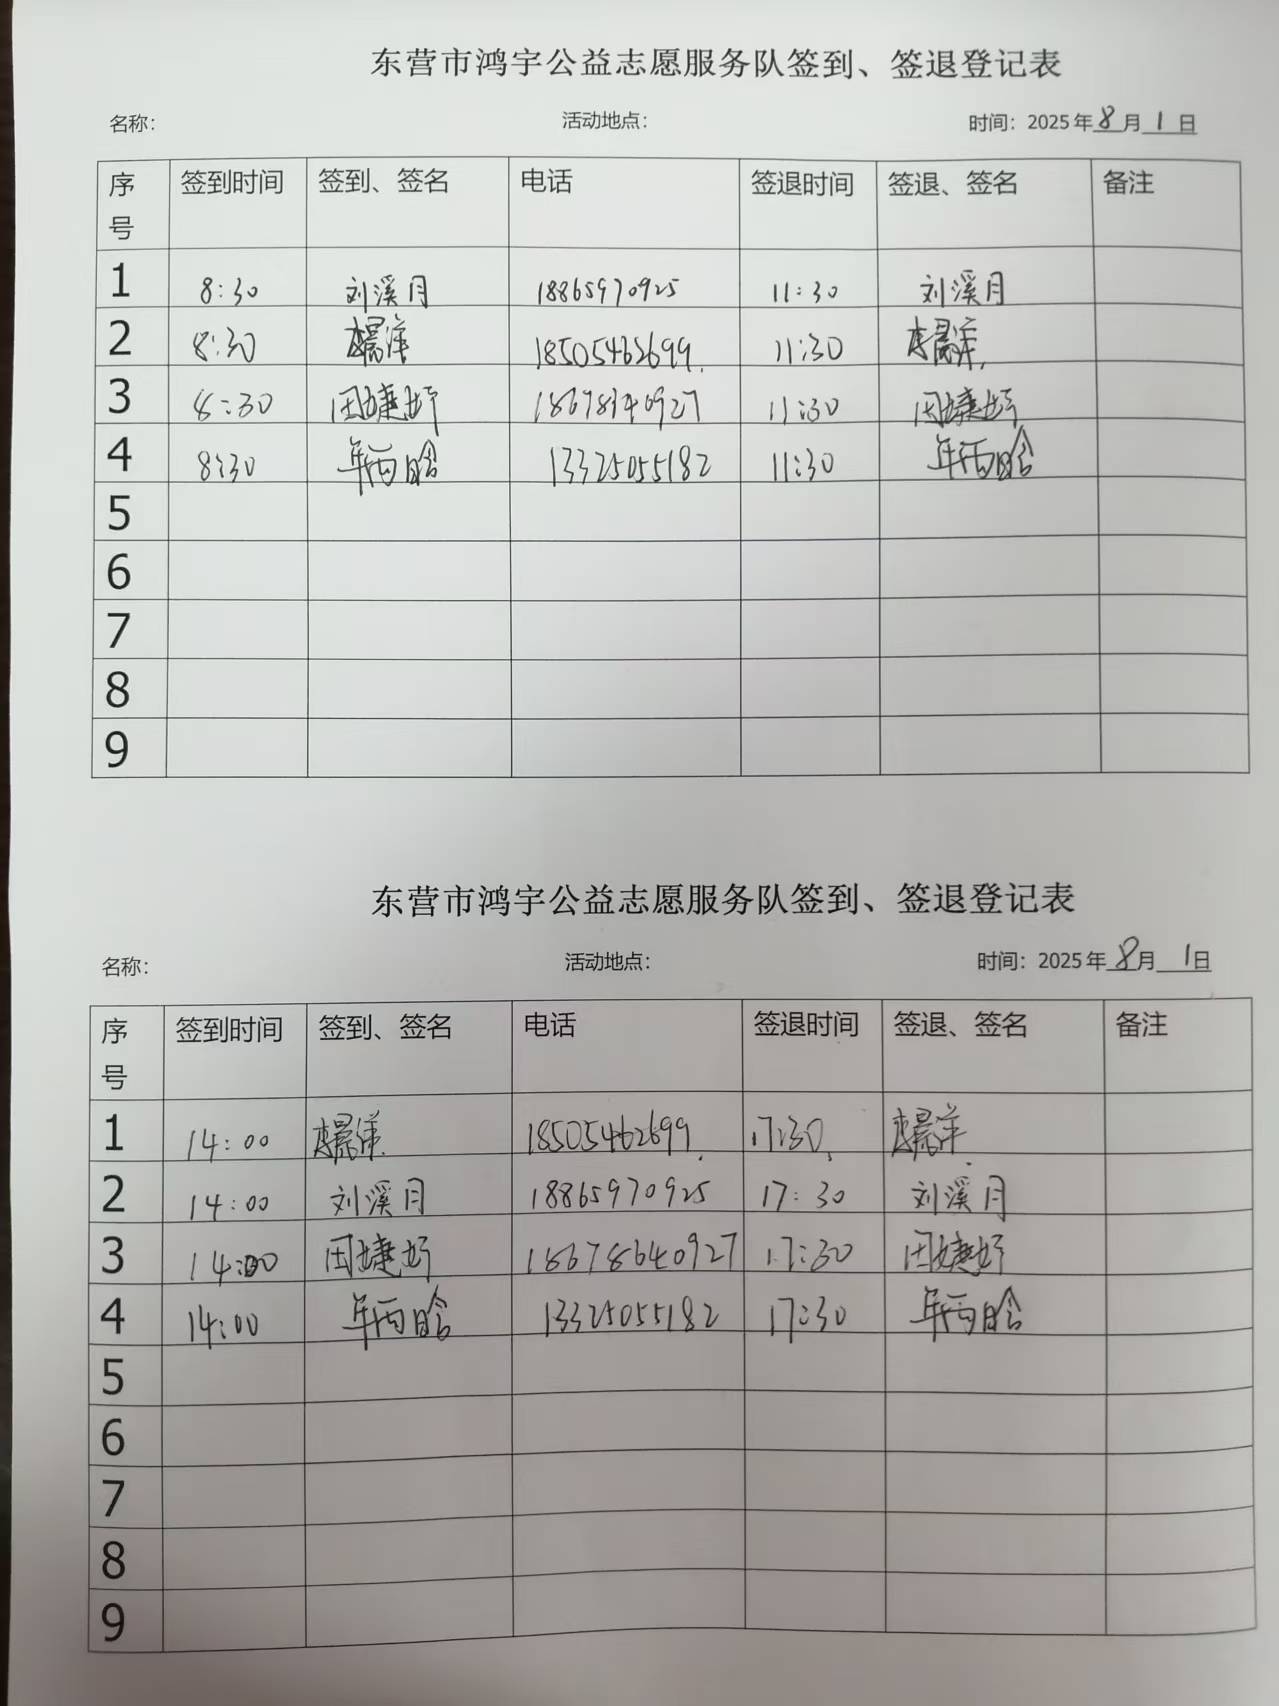 东营市鸿宇公益志愿服务队签到、签退登记表
名称： 活动地点： 时间：2025年8月1日
序号 签到时间 签到、签名 电话 签退时间 签退、签名 备注
1 8:30 刘溪月 18865970925 11:30 刘溪月
2 8:30 18505462699 11:30
3 8:30 田婕妤 11:30 田婕妤
4 8:30 年雨晗 13325055182 11:30 年雨晗
5
6
7
8
9
东营市鸿宇公益志愿服务队签到、签退登记表
名称： 活动地点： 时间：2025年8月1日
序号 签到时间 签到、签名 电话 签退时间 签退、签名 备注
1 14:00 18505462699 17:30
2 14:00 刘溪月 18865970925 17:30 刘溪月
3 14:00 田婕妤 18678640927 17:30 田婕妤
4 14:00 年雨晗 13325055182 17:30 年雨晗
5
6
7
8
9